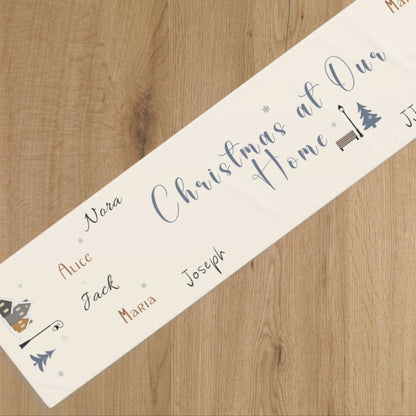 Christmas at Our
Home
Nora
Alice
Jack
Maria
Joseph